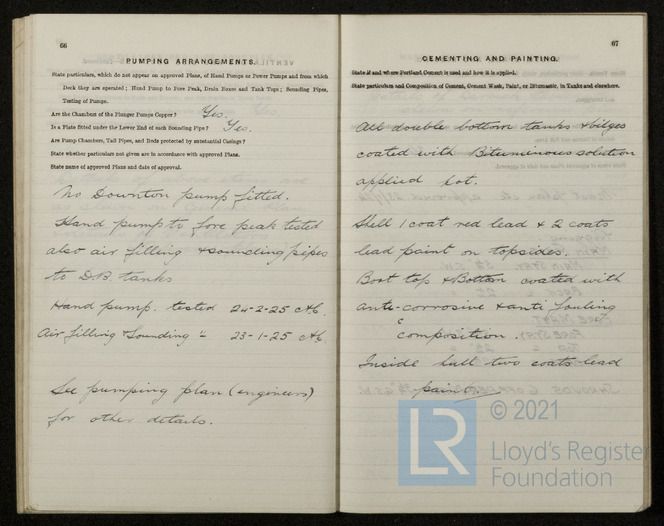 66
PUMPING ARRANGEMENTS.
State particulars, which do not appear on approved Plans, of Hand Pumps or Power Pumps and from which
Deck they are operated; Hand Pump to Fore Peak, Drain Boxes and Tank Tops; Sounding Pipes,
Testing of Pumps.
Are the Chambers of the Plunger Pumps Copper? Yes.
Is a Plate fitted under the Lower End of each Sounding Pipe? Yes.
Are Pump Chambers, Tail Pipes, and Rods protected by substantial Casings?
State whether particulars not given are in accordance with approved Plans.
State name of approved Plans and date of approval.
No Downton pump fitted.
Hand pump to fore peak tested
also air filling & sounding pipes
to D.B. tanks
Hand pump. tested 24-2-25
Air filling & sounding " 23-1-25
See pumping plan (engineers)
for other details.
67
CEMENTING AND PAINTING.
State if and where Portland Cement is used and how it is applied.
State particulars and Composition of Cement, Cement Wash, Paint, or Bitumastic, in Tanks and elsewhere.
All double bottom tanks & bilges
coated with Bituminous solution
applied hot.
Shell 1 coat red lead & 2 coats
lead paint on topsides.
Boot top & Bottom coated with
anti-corrosive & anti fouling
composition.
Inside hull two coats lead
paint
© 2021
LR
Lloyd's Register
Foundation